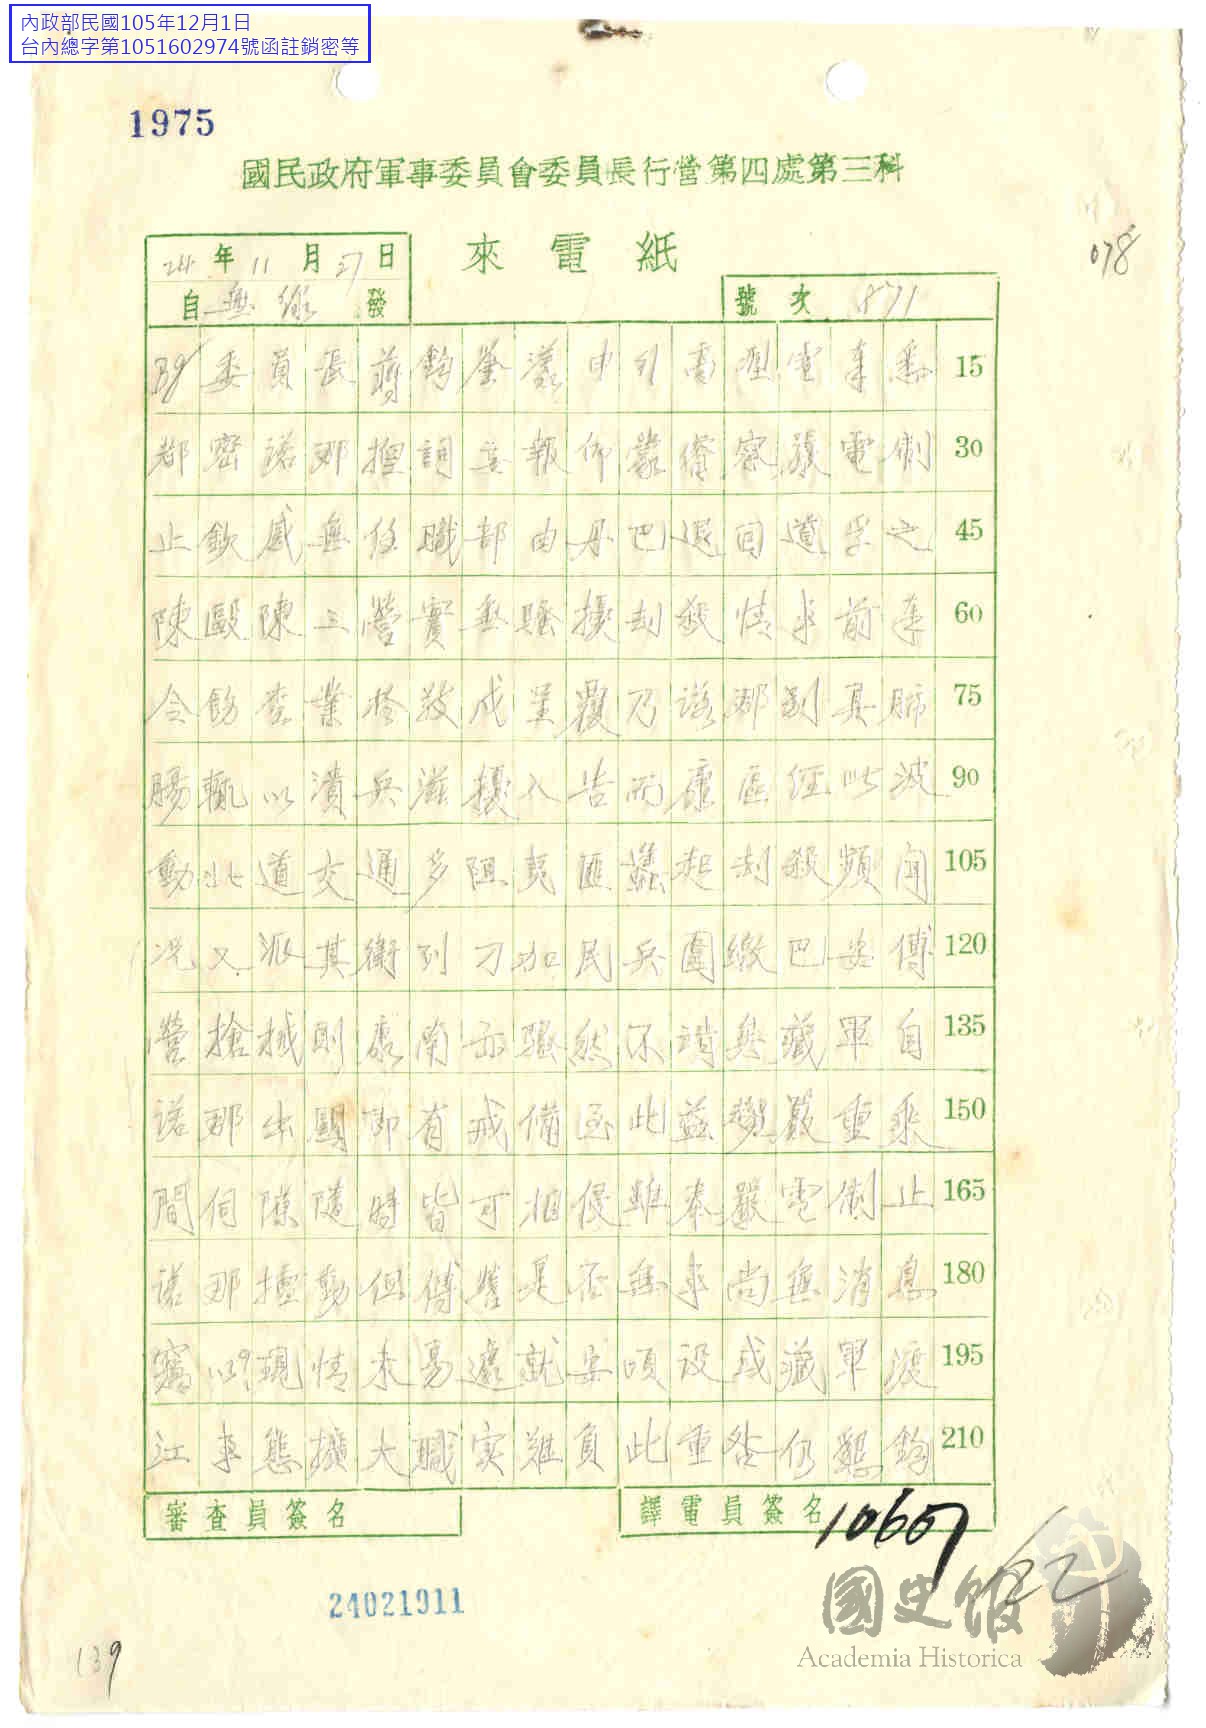 內政部民國105年12月1日
台內總字第1051602974號函註銷密等
1975
國民政府軍事委員會委員長行營第四處第三科
來電紙
078
24年11月27日
自無線發
號次 871
委員長蔣鈞鑒漾申行電 電奉悉 15
都密諾那捏詞妄報仰蒙睿察嚴電制 30
止欽感無任職部由丹巴退回道孚之 45
陳歐陳三營實無騷擾劫殺情事前奉 60
令飭查業 成 乃諾那別具肺 75
腸輒以潰兵滋擾入告而康區經此波 90
動北道交通多阻夷匪蠭起刦殺頻聞 105
況又派其衛列刁加民兵圍繳巴安傅 120
營搶械則康南亦騷然不靖與藏軍自 135
諾那出關即有戒備至此益覺嚴重乘 150
間伺隙隨時皆可相侵雖奉嚴電制止 165
諾那擅動但傅營是否無事尚無消息 180
竊以現情未易遽就妥順設或藏軍渡 195
江事態擴大職实難負此重咎仍懇鈞 210
審查員簽名
譯電員簽名
10607
24021911
國史館
Academia Historica
139